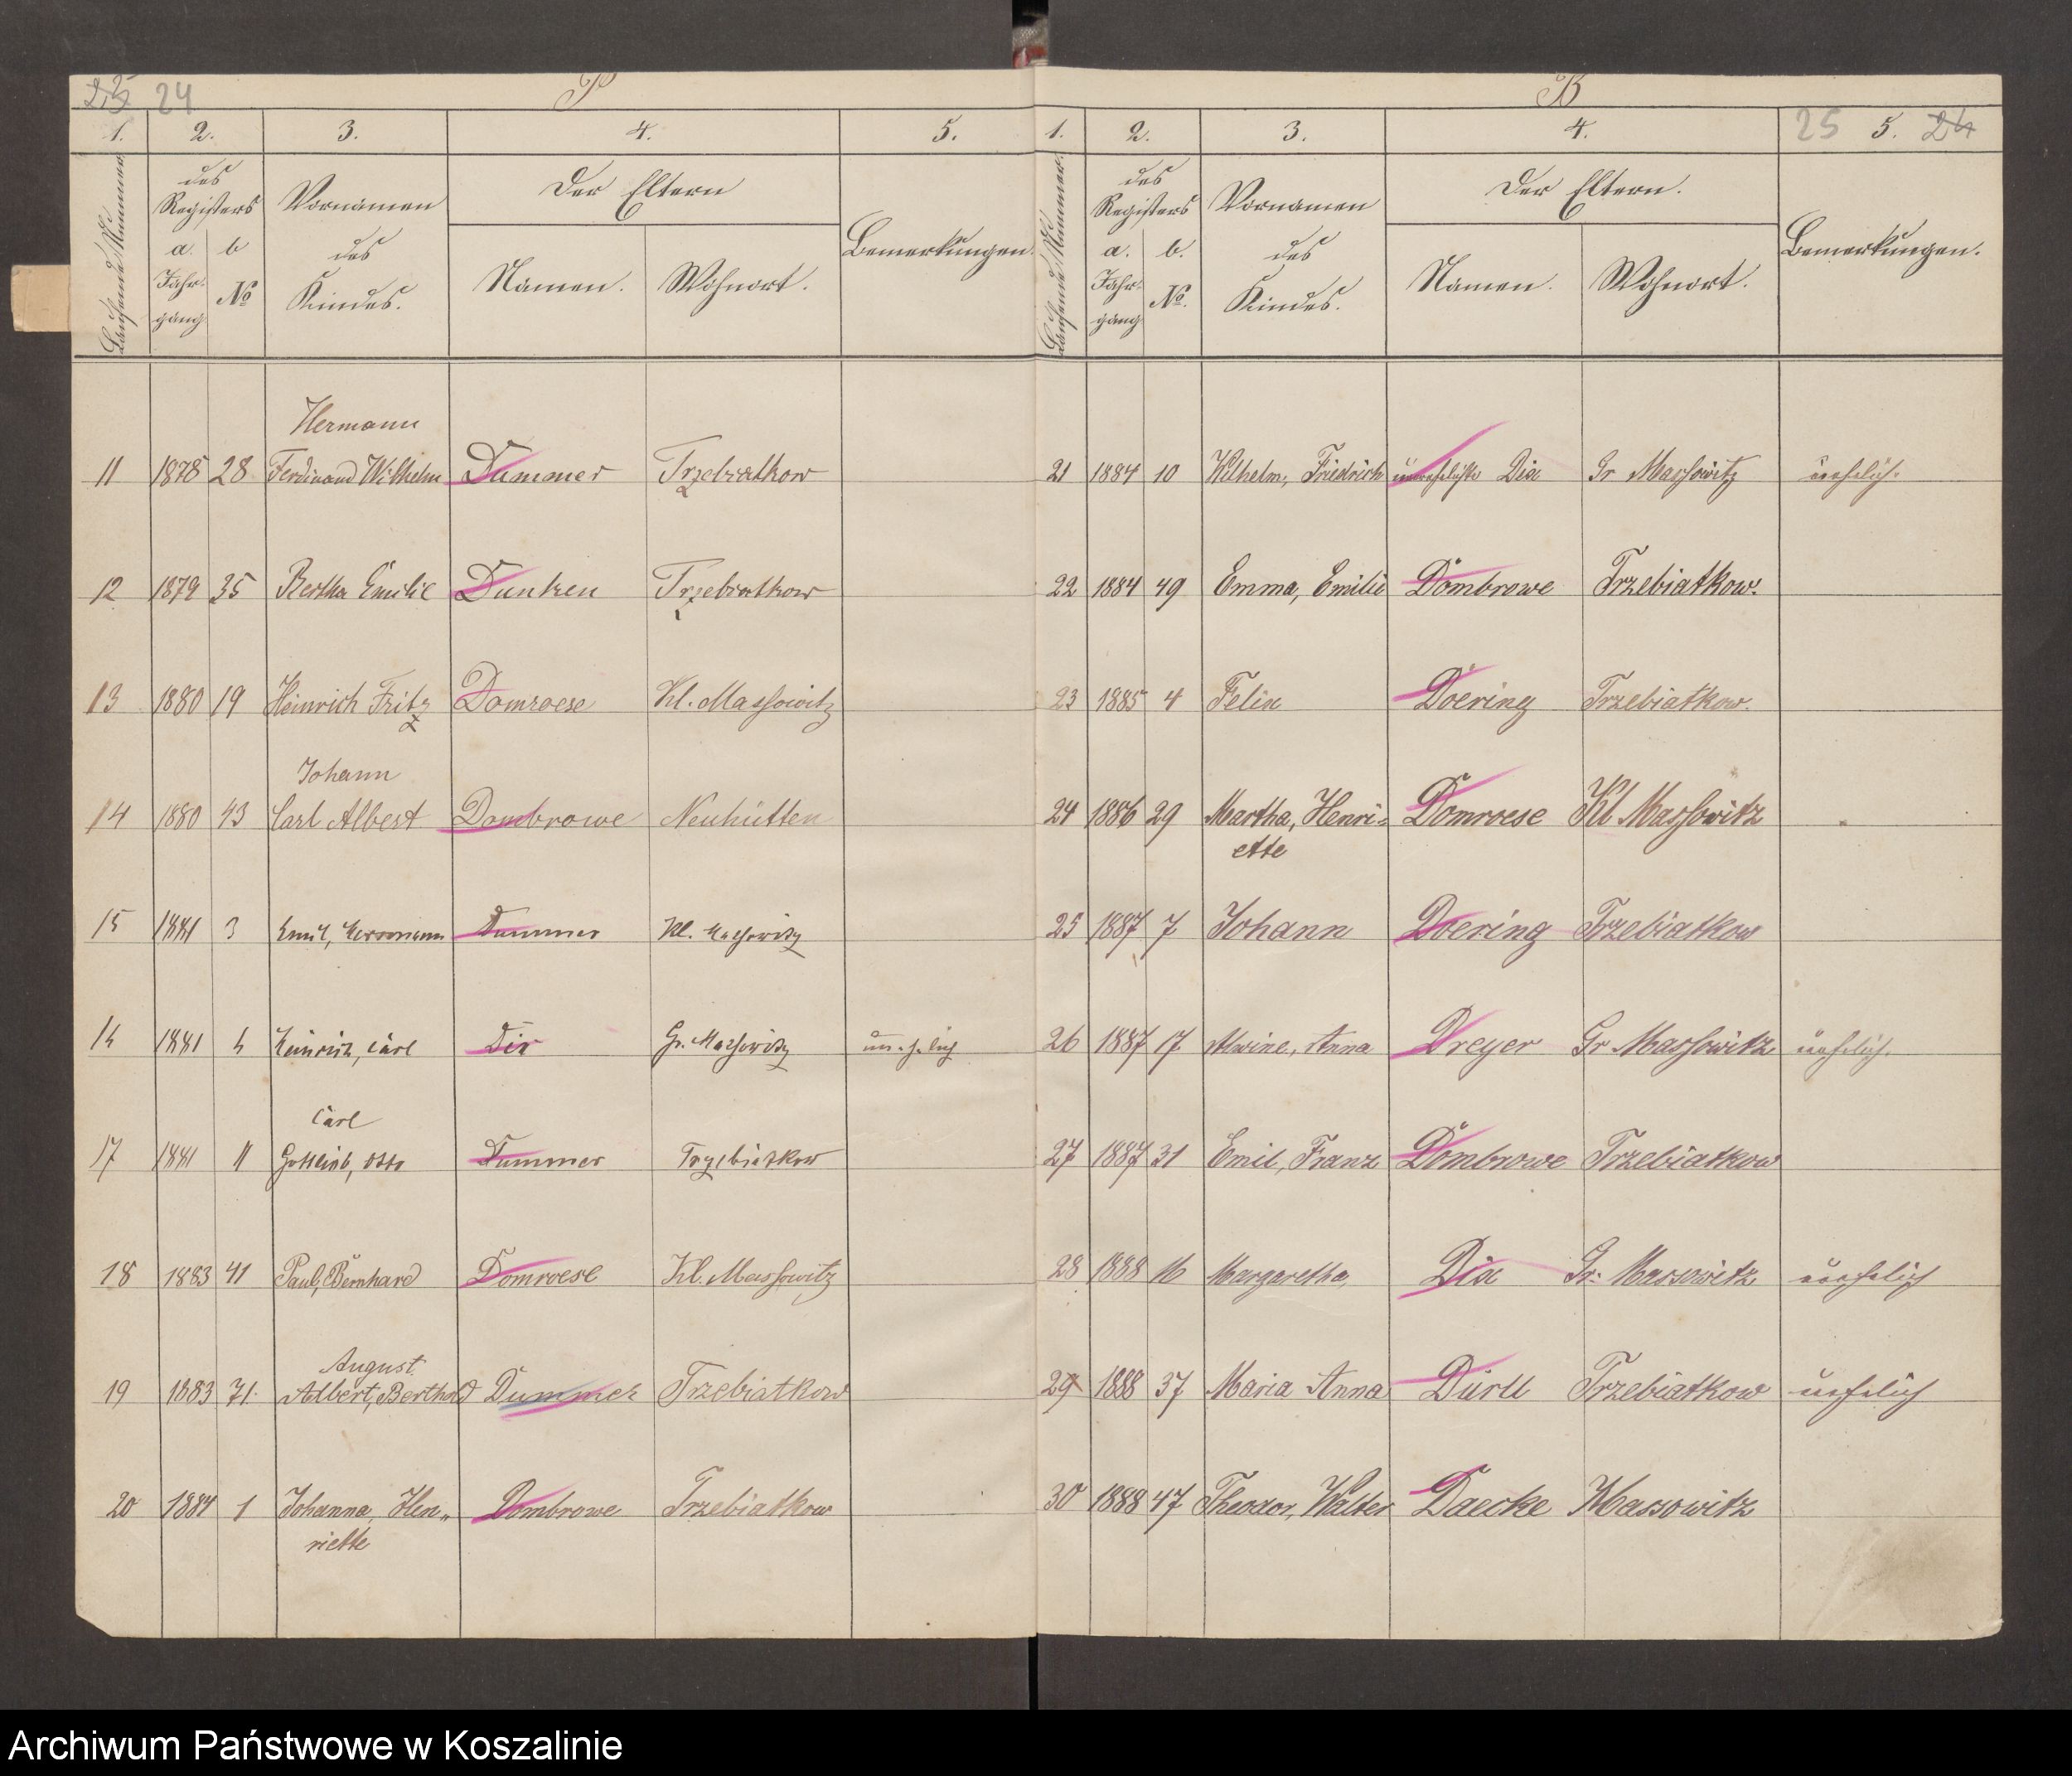 24
1. 2. 3. 4. 5.
Laufende Nummer.
des Registers
a. Jahrgang
b No
Vornamen des Kindes.
Der Eltern
Namen. Wohnort.
Bemerkungen.
Hermann
11 1878 28 Ferdinand Wilhelm Dummer Trzebiatkow
12 1879 35 Bertha Emilie Dunken Trzebiatkow
13 1880 19 Heinrich Fritz Domroese Kl. Massowitz
Johann
14 1880 43 Carl Albert Dombrowe Neuhütten
15 1881 3 Emil, Herrmann Dummer Kl. Massowitz
1881 Heinrich, Carl Gr. Massowitz unehelich
Carl
17 1881 11 Gottlieb, Otto Dummer Trzebiatkow
18 1883 41 Paul, Bernhard Domroese Kl. Massowitz
August
19 1883 71. Albert, Berthold Dummer Trzebiatkow
20 1884 1 Johanna, Hen„ Dombrowe Trzebiatkow
riette
25 24
1. 2. 3. 4. 5.
Laufende Nummer.
des Registers
a. Jahrgang
b. No.
Vornamen des Kindes.
Der Eltern.
Namen. Wohnort.
Bemerkungen.
21 1884 10 Wilhelm, Friedrich Dix Gr Massowitz unehelich.
22 1884 49 Emma, Emilie Dombrowe Trzebiatkow.
23 1885 4 Felix Doering Trzebiatkow.
24 1886 29 Martha, Henri= Domroese Kl Massowitz
ette
25 1887 7 Johann Doering Trzebiatkow
26 1887 17 Alwine, Anna Dreyer Gr Massowitz unehelich.
27 1887 31 Emil, Franz Dombrowe Trzebiatkow
28 1888 16 Margaretha, Dix Gr. Massowitz unehelich
29 1888 37 Maria Anna Trzebiatkow unehelich
30 1888 47 Theodor, Walter Daecke Massowitz
Archiwum Państwowe w Koszalinie